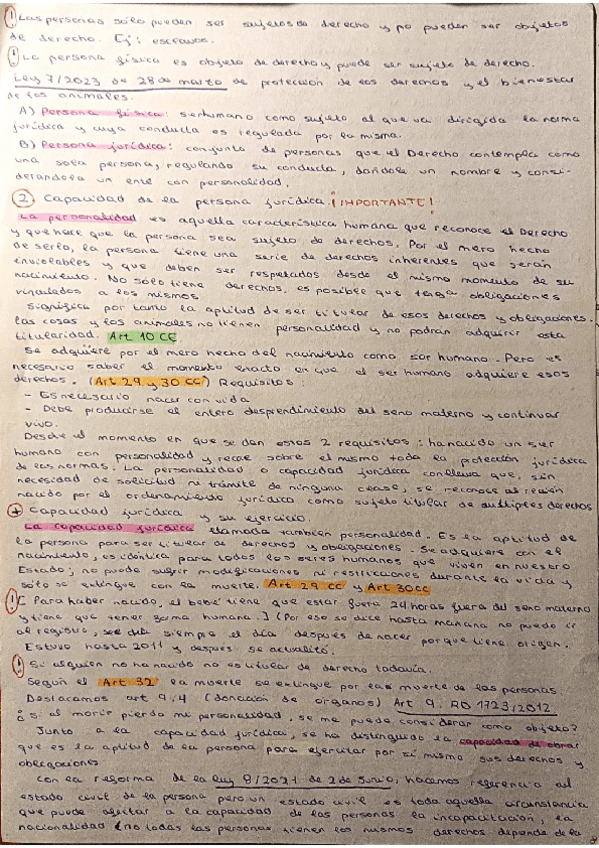 ! Las personas sólo pueden ser sujetos de derecho y no pueden ser objetos
de derecho. Ej: esclavos.
! La persona física es objeto de derecho y puede ser sujeto de derecho.
Ley 7/2023 de 28 de marzo de protección de los derechos y el bienestar
de los animales.
A) Persona física: ser humano como sujeto al que va dirigida la norma
jurídica y cuya conducta es regulada por la misma.
B) Persona jurídica: conjunto de personas que el Derecho contempla como
una sola persona, regulando su conducta, dándole un nombre y consi-
derándola un ente con personalidad.
2. Capacidad de la persona jurídica. ¡IMPORTANTE!
La personalidad es aquella característica humana que reconoce el Derecho
y que hace que la persona sea sujeto de derechos. Por el mero hecho
de serlo, la persona tiene una serie de derechos inherentes que serán
inviolables y que deben ser respetados desde el mismo momento de su
nacimiento. No sólo tiene derechos, es posible que tenga obligaciones
vinculados a los mismos
Significa por tanto la aptitud de ser titular de esos derechos y obligaciones.
Las cosas y los animales no tienen personalidad y no podrán adquirir esta
titularidad. Art 10 CE
Se adquiere por el mero hecho del nacimiento como ser humano. Pero es
necesario saber el momento exacto en que el ser humano adquiere esos
derechos. (Art 29 y 30 CC) Requisitos:
- Es necesario nacer con vida
- Debe producirse el entero desprendimiento del seno materno y continuar
vivo.
Desde el momento en que se dan estos 2 requisitos: ha nacido un ser
humano con personalidad y recae sobre el mismo toda la protección jurídica
de las normas. La personalidad o capacidad jurídica conlleva que, sin
necesidad de solicitud ni trámite de ninguna clase, se reconoce al recién
nacido por el ordenamiento jurídico como sujeto titular de múltiples derechos
+ Capacidad jurídica y su ejercicio.
La capacidad jurídica llamada también personalidad. Es la aptitud de
la persona para ser titular de derechos y obligaciones. Se adquiere con el
nacimiento, es idéntica para todos los seres humanos que viven en nuestro
Estado; no puede sufrir modificaciones ni restricciones durante la vida y
sólo se extingue con la muerte. Art 29 CC y Art 30 CC
! [Para haber nacido, el bebé tiene que estar fuera 24 horas fuera del seno materno
y tiene que tener forma humana.] (Por eso se dice hasta mañana no puede ir
al registro, siempre el día después de nacer porque tiene origen.
Estuvo hasta 2011 y después se actualizó.
! Si alguien no ha nacido no es titular de derecho todavía.
Según el Art 32 la muerte se extingue por las muerte de las personas
Destacamos art 9.4 (donación de órganos) Art 9. RD 1723/2012
¿si al morir pierdo mi personalidad, se me puede considerar como objeto?
Junto a la capacidad jurídica, se ha distinguido la capacidad de obrar
que es la aptitud de la persona para ejercitar por sí misma sus derechos y
obligaciones
Con la reforma de la ley 8/2021 de 2 de junio, hacemos referencia al
estado civil de la persona pero un estado civil es toda aquella circunstancia
que puede afectar a la capacidad de las personas la incapacitación, la
nacionalidad (no todas las personas tienen los mismos derechos depende de la